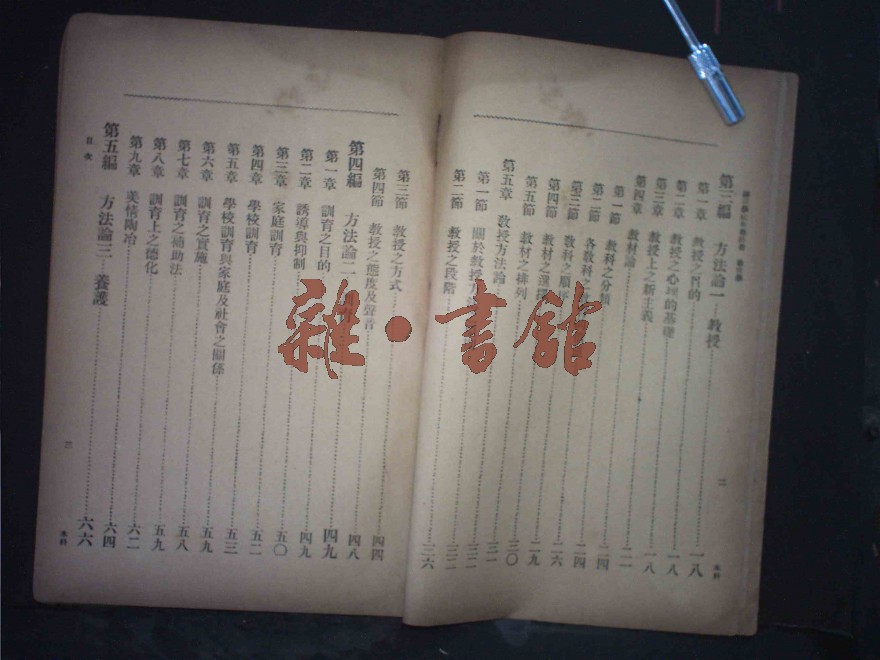 第三編 方法論一 教授 一八
第一章 教授之目的 一八
第二章 教授之心理的基礎 一八
第三章 教授上之新主義 一八
第四章 教材論 二二
第一節 教科之分類 二四
第二節 各教科之
第三節 教科之順序 二四
第四節 教材之選擇 二六
第五節 教材之排列 二九
第五章 教授方法論 三〇
第一節 關於教授方
第二節 教授之段階 三二
二
本科
第三節 教授之方式
第四節 教授之態度及聲音 四四
第四編 方法論二 四八
第一章 訓育之目的 四九
第二章 誘導與抑制 四九
第三章 家庭訓育 五〇
第四章 學校訓育 五二
第五章 學校訓育與家庭及社會之關係 五三
第六章 訓育之實施 五九
第七章 訓育之補助法 五八
第八章 訓育上之德化 五九
第九章 美情陶冶 六二
第五編 方法論三 養護 六四
目次
三
六六
本科
雜·書館